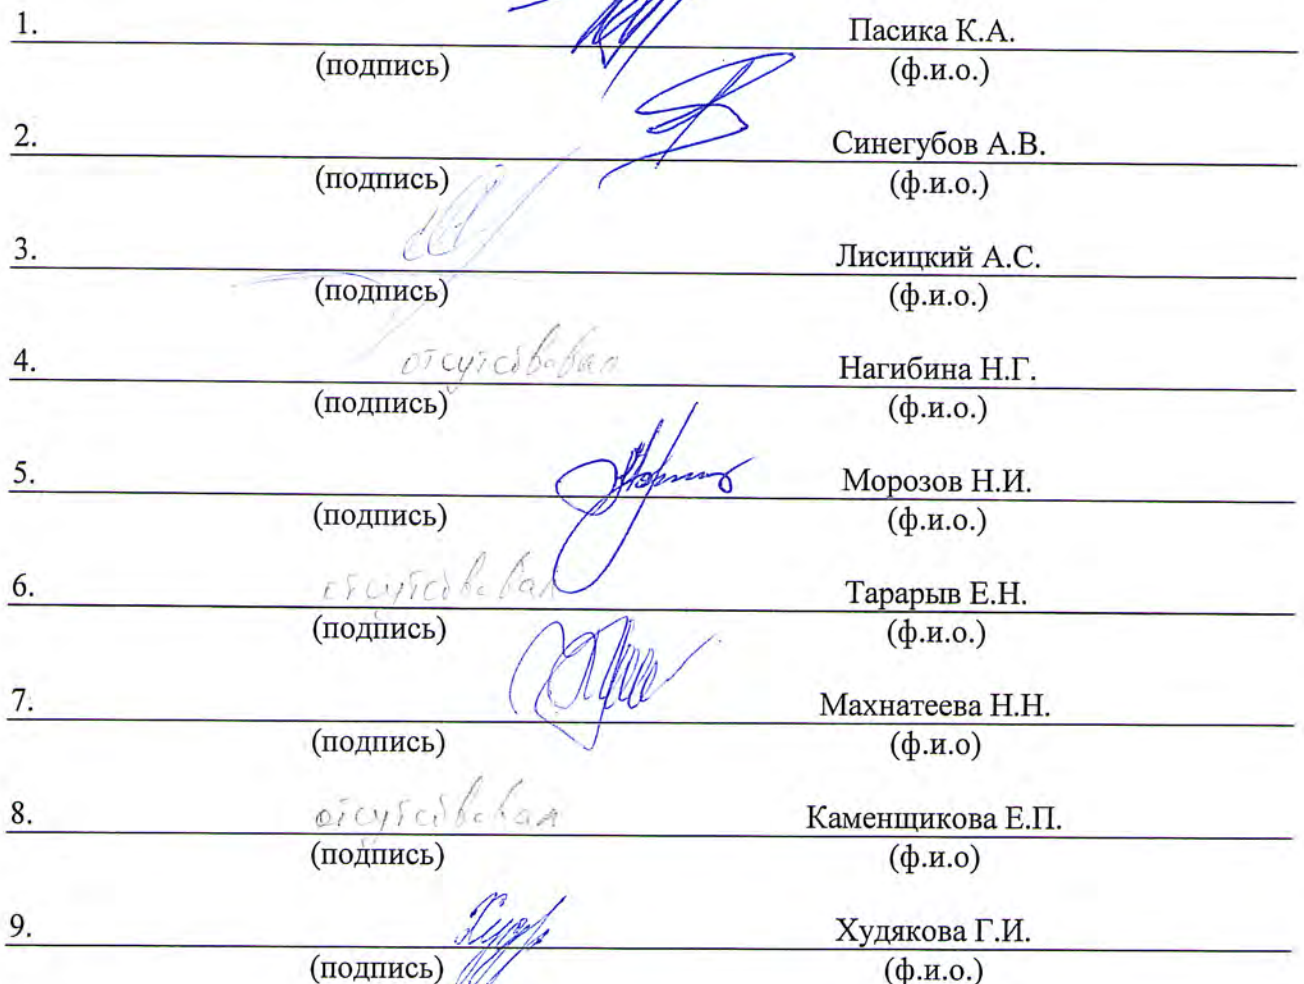 1. Пасика К.А.
(подпись) (ф.и.о.)
2. Синегубов А.В.
(подпись) (ф.и.о.)
3. Лисицкий А.С.
(подпись) (ф.и.о.)
4. отсутствовал Нагибина Н.Г.
(подпись) (ф.и.о.)
5. Морозов Н.И.
(подпись) (ф.и.о.)
6. отсутствовал Тарарыв Е.Н.
(подпись) (ф.и.о.)
7. Махнатеева Н.Н.
(подпись) (ф.и.о)
8. отсутствовал Каменщикова Е.П.
(подпись) (ф.и.о)
9. Худякова Г.И.
(подпись) (ф.и.о.)